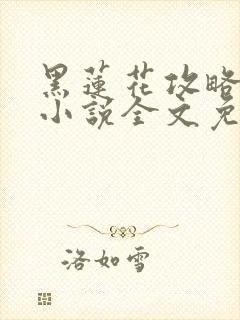 黑蓮花攻略
小說全文免
洛如雪